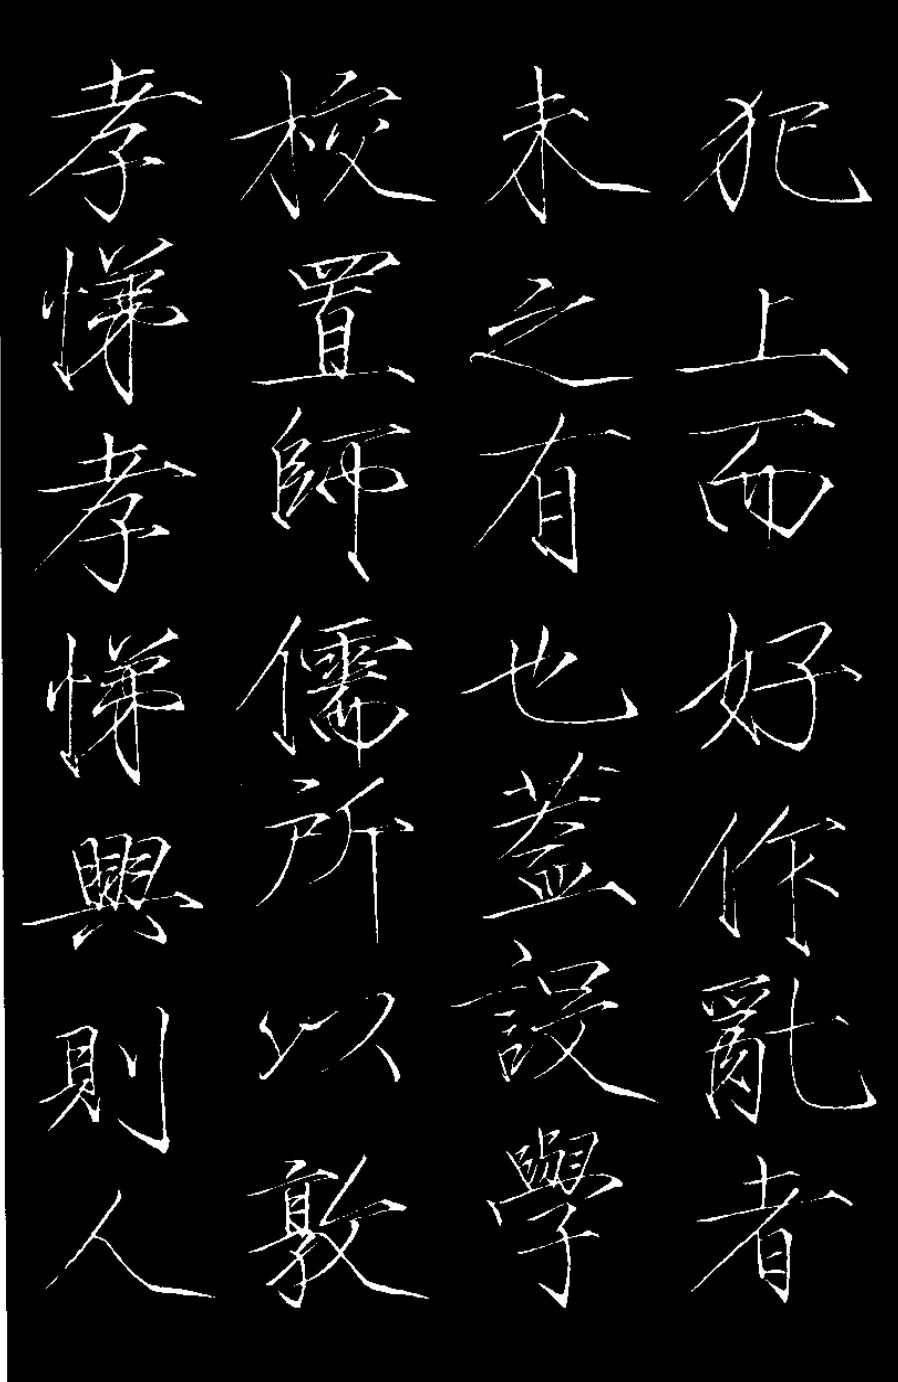 犯上而好作亂者
未之有也蓋設學
校置師儒所以敦
孝悌孝悌興則人